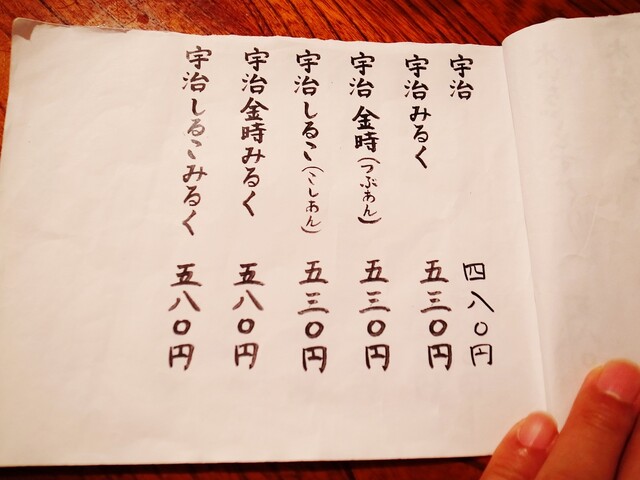 宇治 四八〇円
宇治みるく 五三〇円
宇治金時(つぶあん) 五三〇円
宇治しるこ(こしあん) 五三〇円
宇治金時みるく 五八〇円
宇治しるこみるく 五八〇円